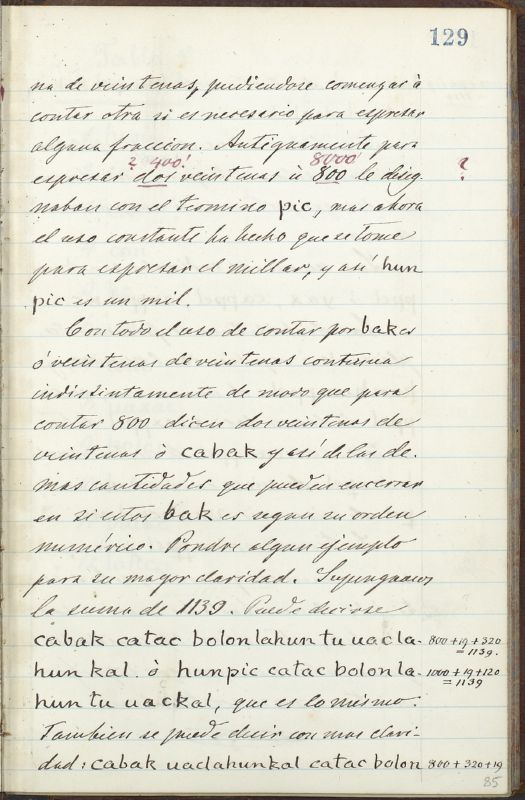 129
na de veintenas, pudiendose comenzar à
contar otra si es necesario para espresar
alguna fraccion. Antiguamente para
? 400! 8000
espresar dos veintenas ù 800 le desig- ?
naban con el termino pic, mas ahora
el uso constante ha hecho que se tome
para espresar el millar, y asi hun
pic es un mil.
Con todo el uso de contar por bakes
ó veintenas de veintenas continua
indistintamente de modo que para
contar 800 dicen dos veintenas de
veintenas ò cabak y asi de las de.
mas cantidades que pueden encerrar
en si estos bakes segun su orden
numérico. Pondre algun ejemplo
para su mayor claridad. Supongamos
la suma de 1139. Puede decirse
cabak catac bolonlahun tu uacla- 800+19+320
= 1139.
hun kal. ò hunpic catac bolonla- 1000+19+120
= 1139
hun tu uackal, que es lo mismo.
Tambien se puede decir con mas clari-
dad: cabak uaclahunkal catac bolon 800+320+19
85